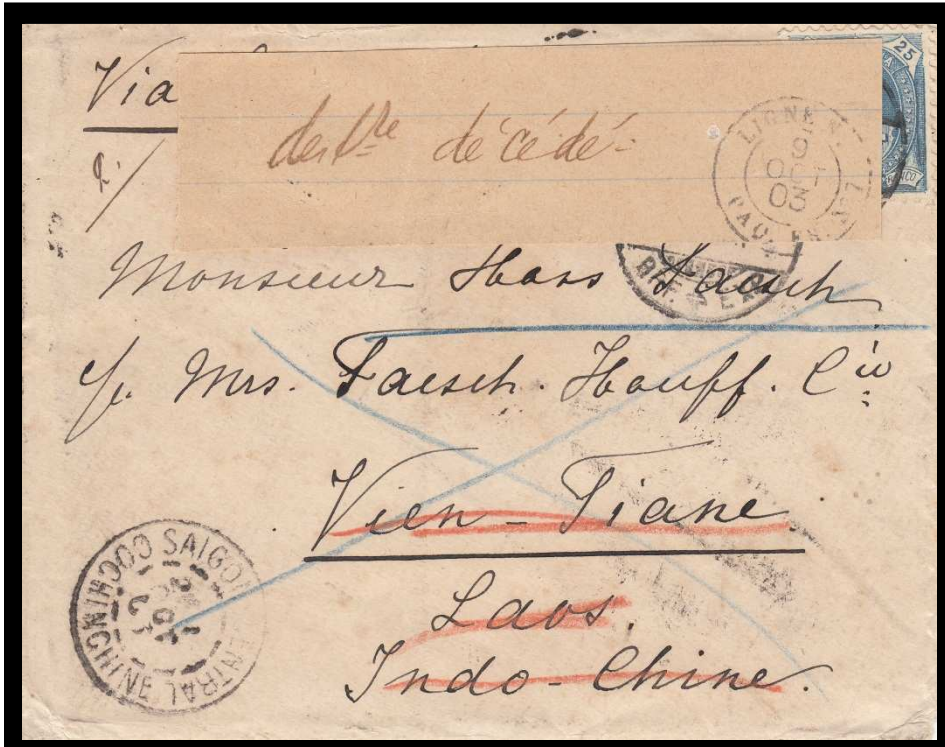 Via
dest.re décédé-
25
LIGNE N.
9
OCT
03
PAQ. FR.
Monsieur Hass Faesch
c/o. Mrs. Faesch. Houff. Cie
Vien-Tiane.
Laos.
Indo-Chine.
SAIGON CENTRAL
COCHINCHINE